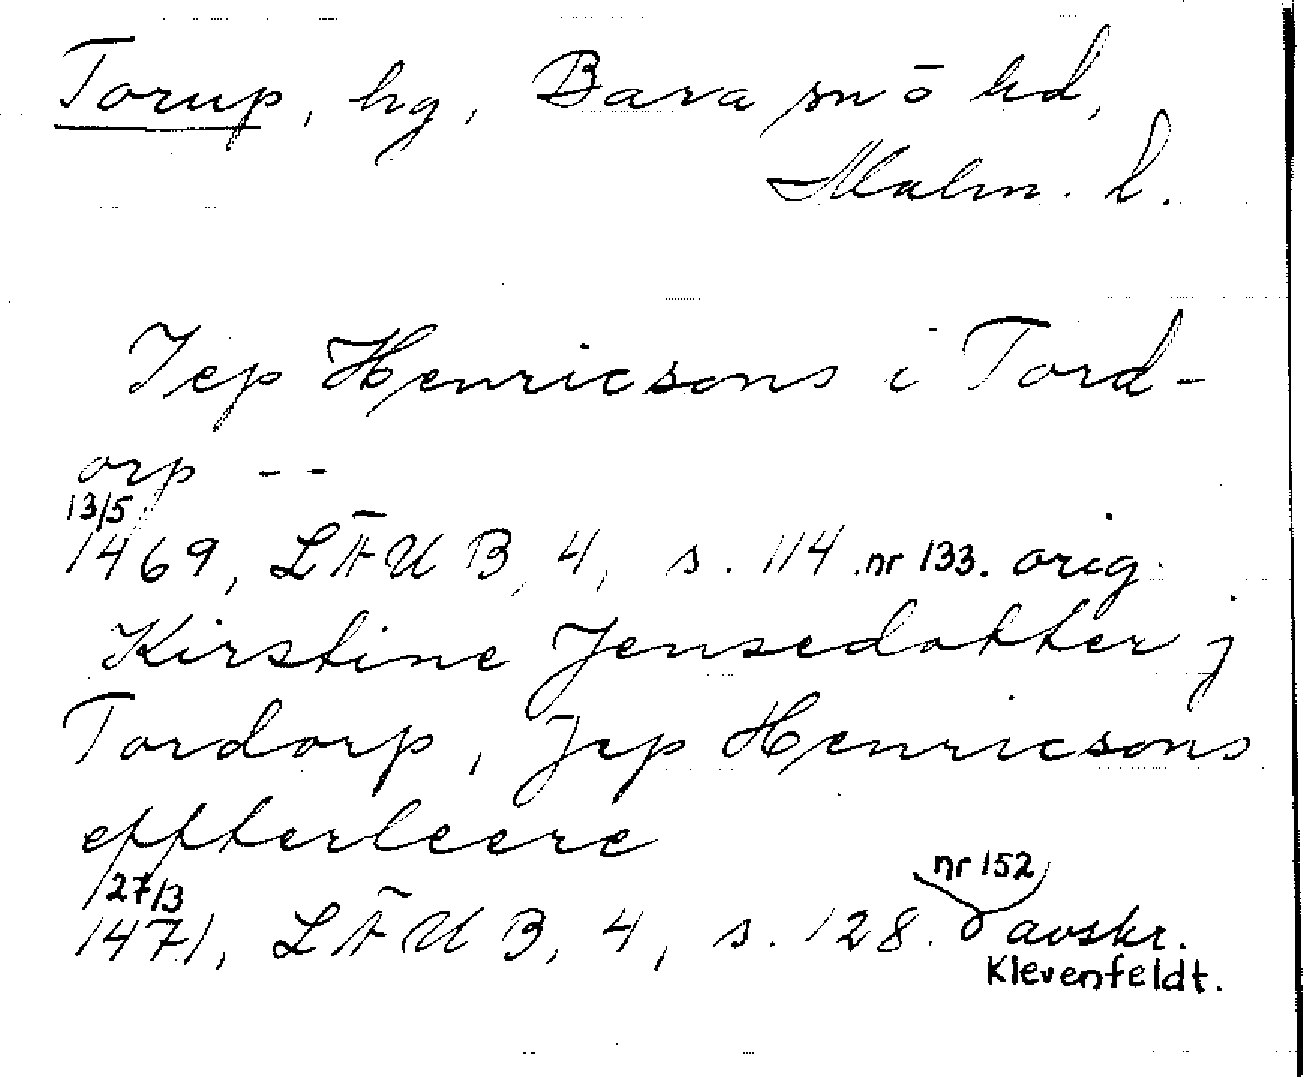 Torup, hg, Bara sn o hd,
Malm. l.
Jep Henricsons i Tord-
orp --
13/5
1469, LÄUB, 4, s. 114 nr 133. orig.
Kirstine Jensedotter j
Tordorp, Jep Henricsons
effterleere
27/3 nr 152
1471, LÄUB, 4, s. 128. avskr.
Klevenfeldt.